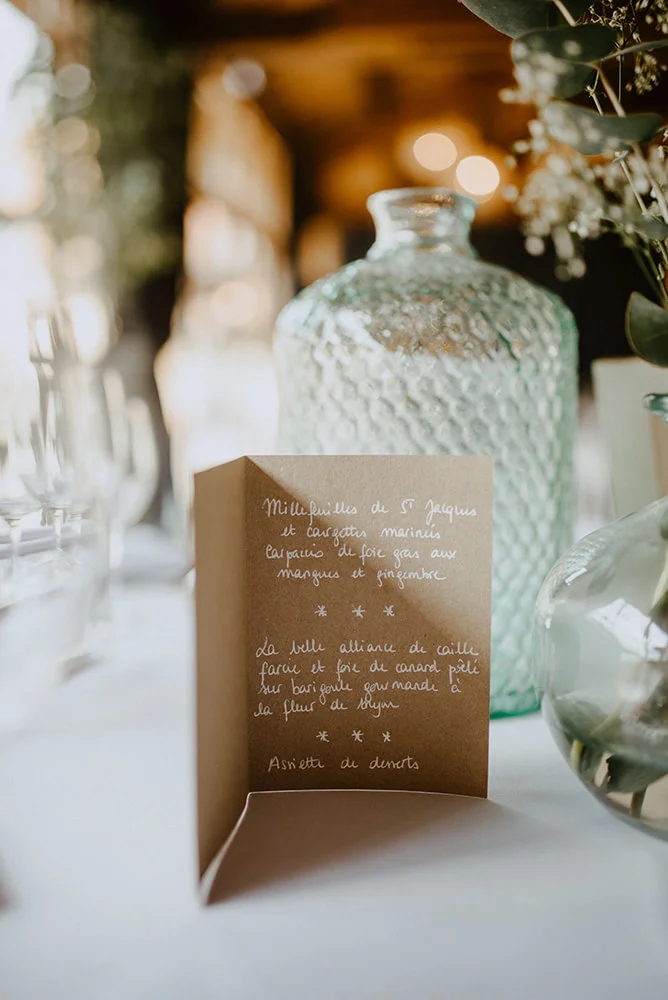 Millefeuilles de St Jacques
et courgettes marinées
Carpaccio de foie gras aux
mangues et gingembre
* * *
La belle alliance de caille
farcie et foie de canard poêlé
sur barigoule gourmande à
la fleur de thym
* * *
Assiette de desserts